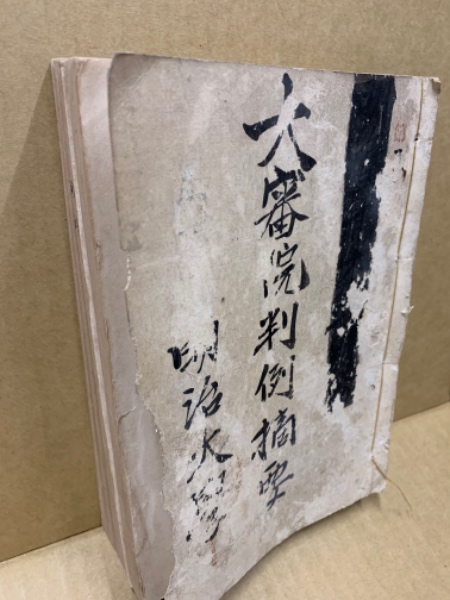 大審院判例摘要
明治